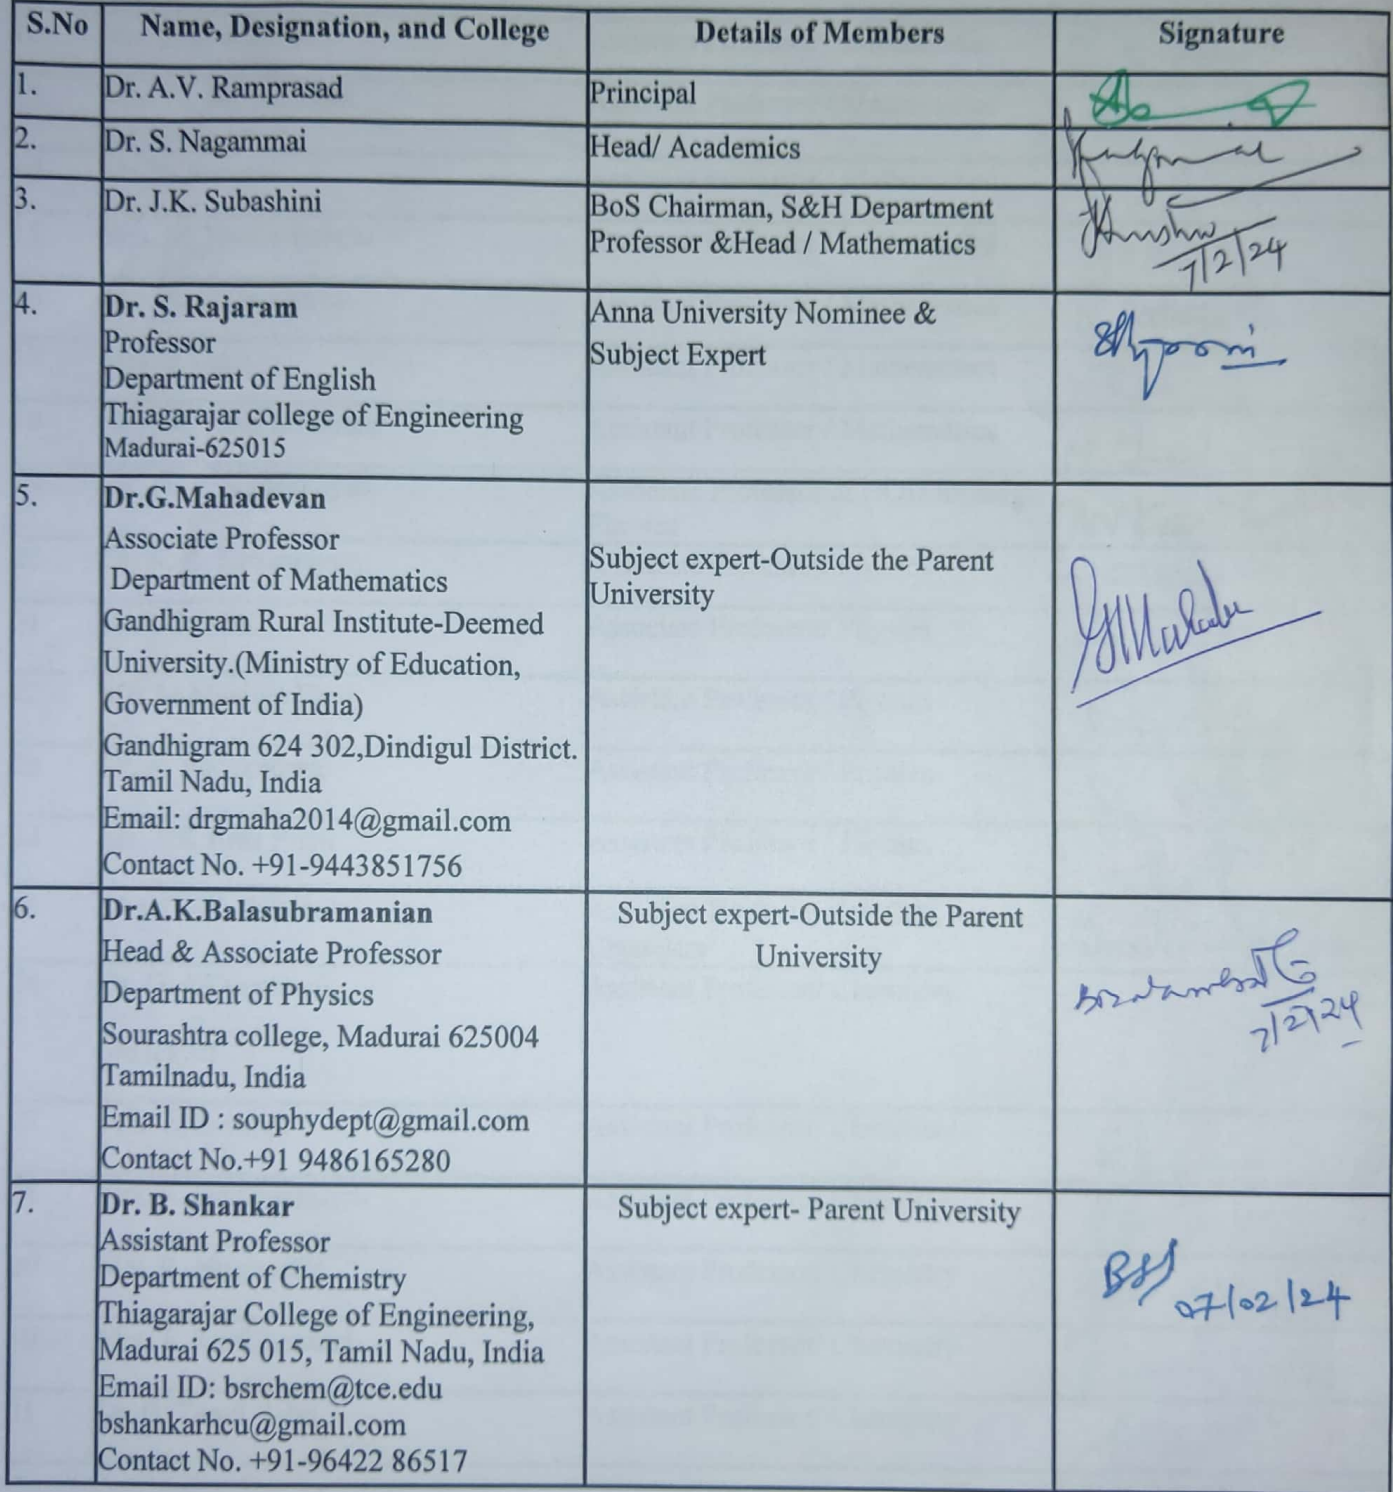 S.No Name, Designation, and College Details of Members Signature
1. Dr. A.V. Ramprasad Principal
2. Dr. S. Nagammai Head/ Academics
3. Dr. J.K. Subashini BoS Chairman, S&H Department
Professor &Head / Mathematics
7/2/24
4. Dr. S. Rajaram Anna University Nominee &
Professor Subject Expert
Department of English
Thiagarajar college of Engineering
Madurai-625015
5. Dr.G.Mahadevan
Associate Professor
Department of Mathematics
Gandhigram Rural Institute-Deemed
University.(Ministry of Education,
Government of India)
Gandhigram 624 302,Dindigul District.
Tamil Nadu, India
Email: drgmaha2014@gmail.com
Contact No. +91-9443851756
Subject expert-Outside the Parent
University
6. Dr.A.K.Balasubramanian
Head & Associate Professor
Department of Physics
Sourashtra college, Madurai 625004
Tamilnadu, India
Email ID : souphydept@gmail.com
Contact No.+91 9486165280
Subject expert-Outside the Parent
University
7/2/24
7. Dr. B. Shankar
Assistant Professor
Department of Chemistry
Thiagarajar College of Engineering,
Madurai 625 015, Tamil Nadu, India
Email ID: bsrchem@tce.edu
bshankarhcu@gmail.com
Contact No. +91-96422 86517
Subject expert- Parent University
07/02/24